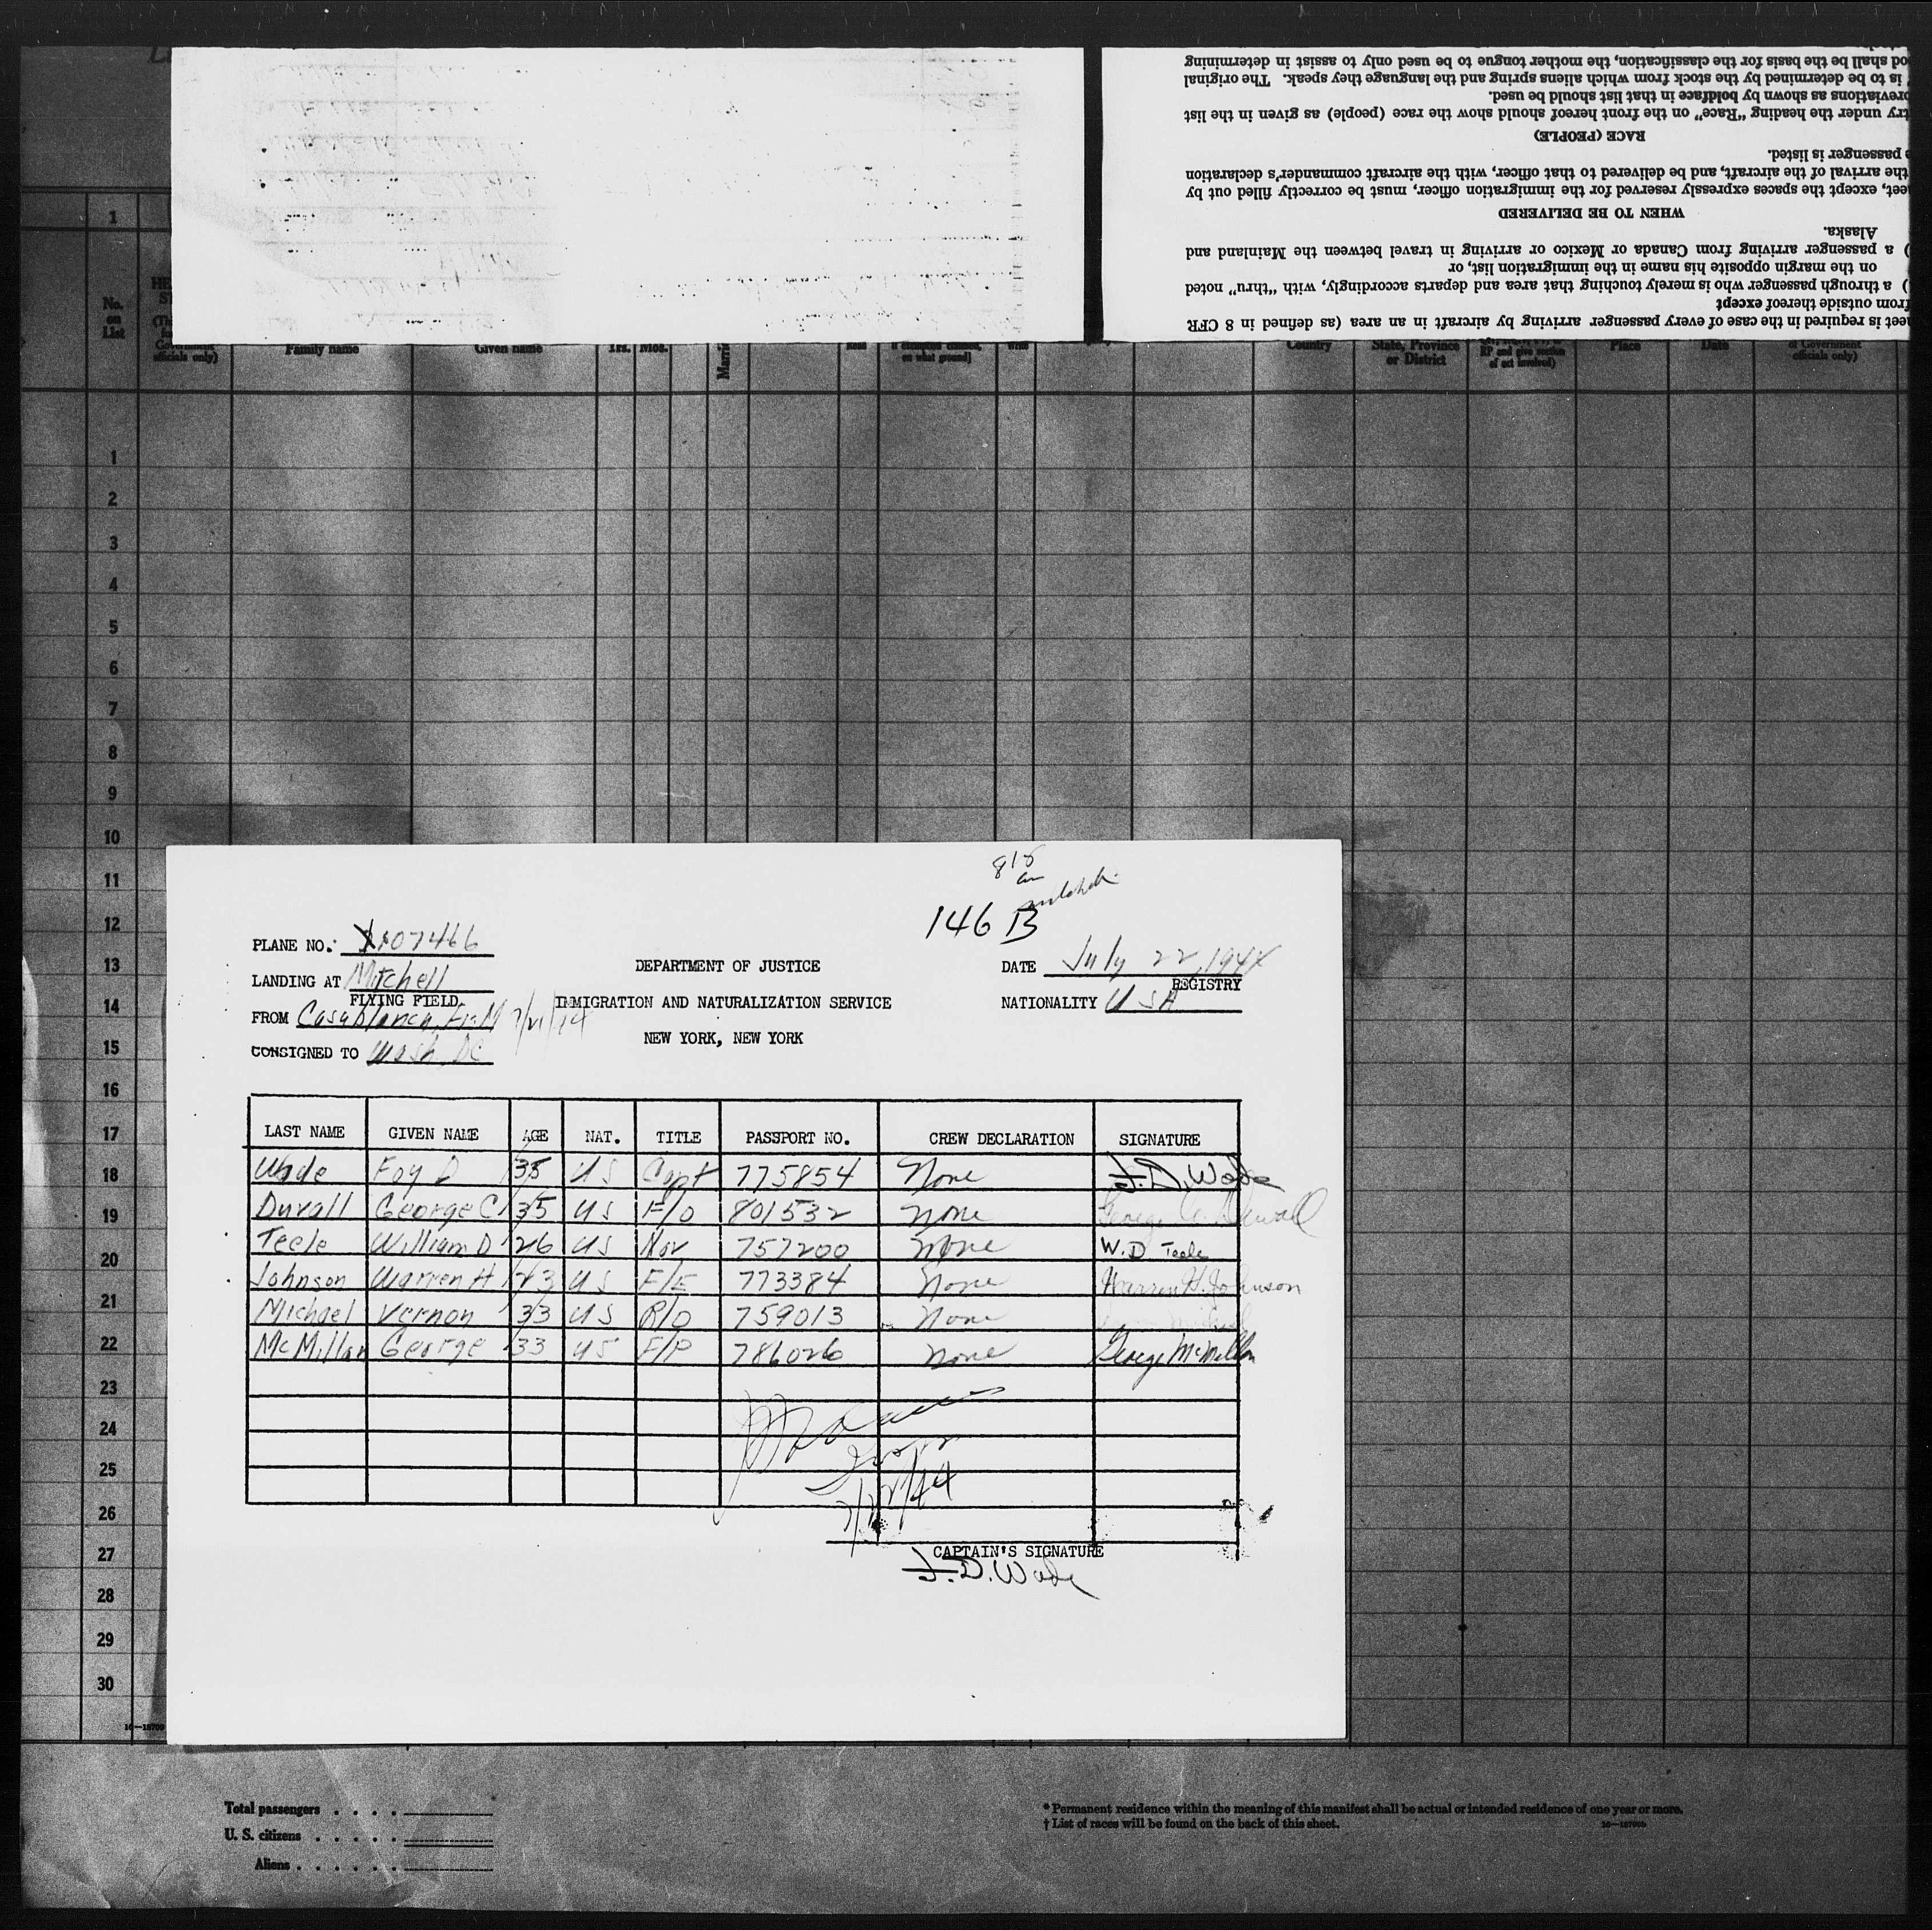 eet is required in the case of every passenger arriving by aircraft in an area (as defined in 8 CFR
from outside thereof except
) a through passenger who is merely touching that area and departs accordingly, with "thru" noted
on the margin opposite his name in the immigration list, or
) a passenger arriving from Canada or Mexico or arriving in travel between the Mainland and
Alaska.
WHEN TO BE DELIVERED
eet, except the spaces expressly reserved for the immigration officer, must be correctly filled out by
the arrival of the aircraft, and be delivered to that officer, with the aircraft commander's declaration
e passenger is listed.
RACE (PEOPLE)
try under the heading "Race" on the front hereof should show the race (people) as given in the list
breviations as shown by boldface in that list should be used.
is to be determined by the stock from which aliens spring and the language they speak. The original
od shall be the basis for the classification, the mother tongue to be used only to assist in determining
1
No. on List
Family name Given name Yrs. Mos. Read on what ground] Write Country State, Province or District RP and give section of act involved) Place Date of Government officials only)
1
2
3
4
5
6
7
8
9
10
11
12
13
14
15
16
17
18
19
20
21
22
23
24
25
26
27
28
29
30
815
146 B
PLANE NO. 07466
LANDING AT Mitchell
FLYING FIELD
FROM Casablanca, Fr. M 7/21/44
CONSIGNED TO Wash DC
DEPARTMENT OF JUSTICE
IMMIGRATION AND NATURALIZATION SERVICE
NEW YORK, NEW YORK
DATE July 22, 1944
REGISTRY
NATIONALITY USA
LAST NAME GIVEN NAME AGE NAT. TITLE PASSPORT NO. CREW DECLARATION SIGNATURE
Wade Foy D 35 US Capt 775854 None F.D. Wade
Duvall George C 35 US F/O 801532 None George C. Duvall
Teele William D 26 US Nav 757200 None W.D Teele
Johnson Warren H 23 US F/E 773384 None Warren H. Johnson
Michael Vernon 33 US R/O 759013 None
McMillan George 33 US F/P 786026 None George McMillan
7/22/44
CAPTAIN'S SIGNATURE
F.D. Wade
16—18709
Total passengers . . . .
U. S. citizens . . . . .
Aliens . . . . . .
* Permanent residence within the meaning of this manifest shall be actual or intended residence of one year or more.
† List of races will be found on the back of this sheet.